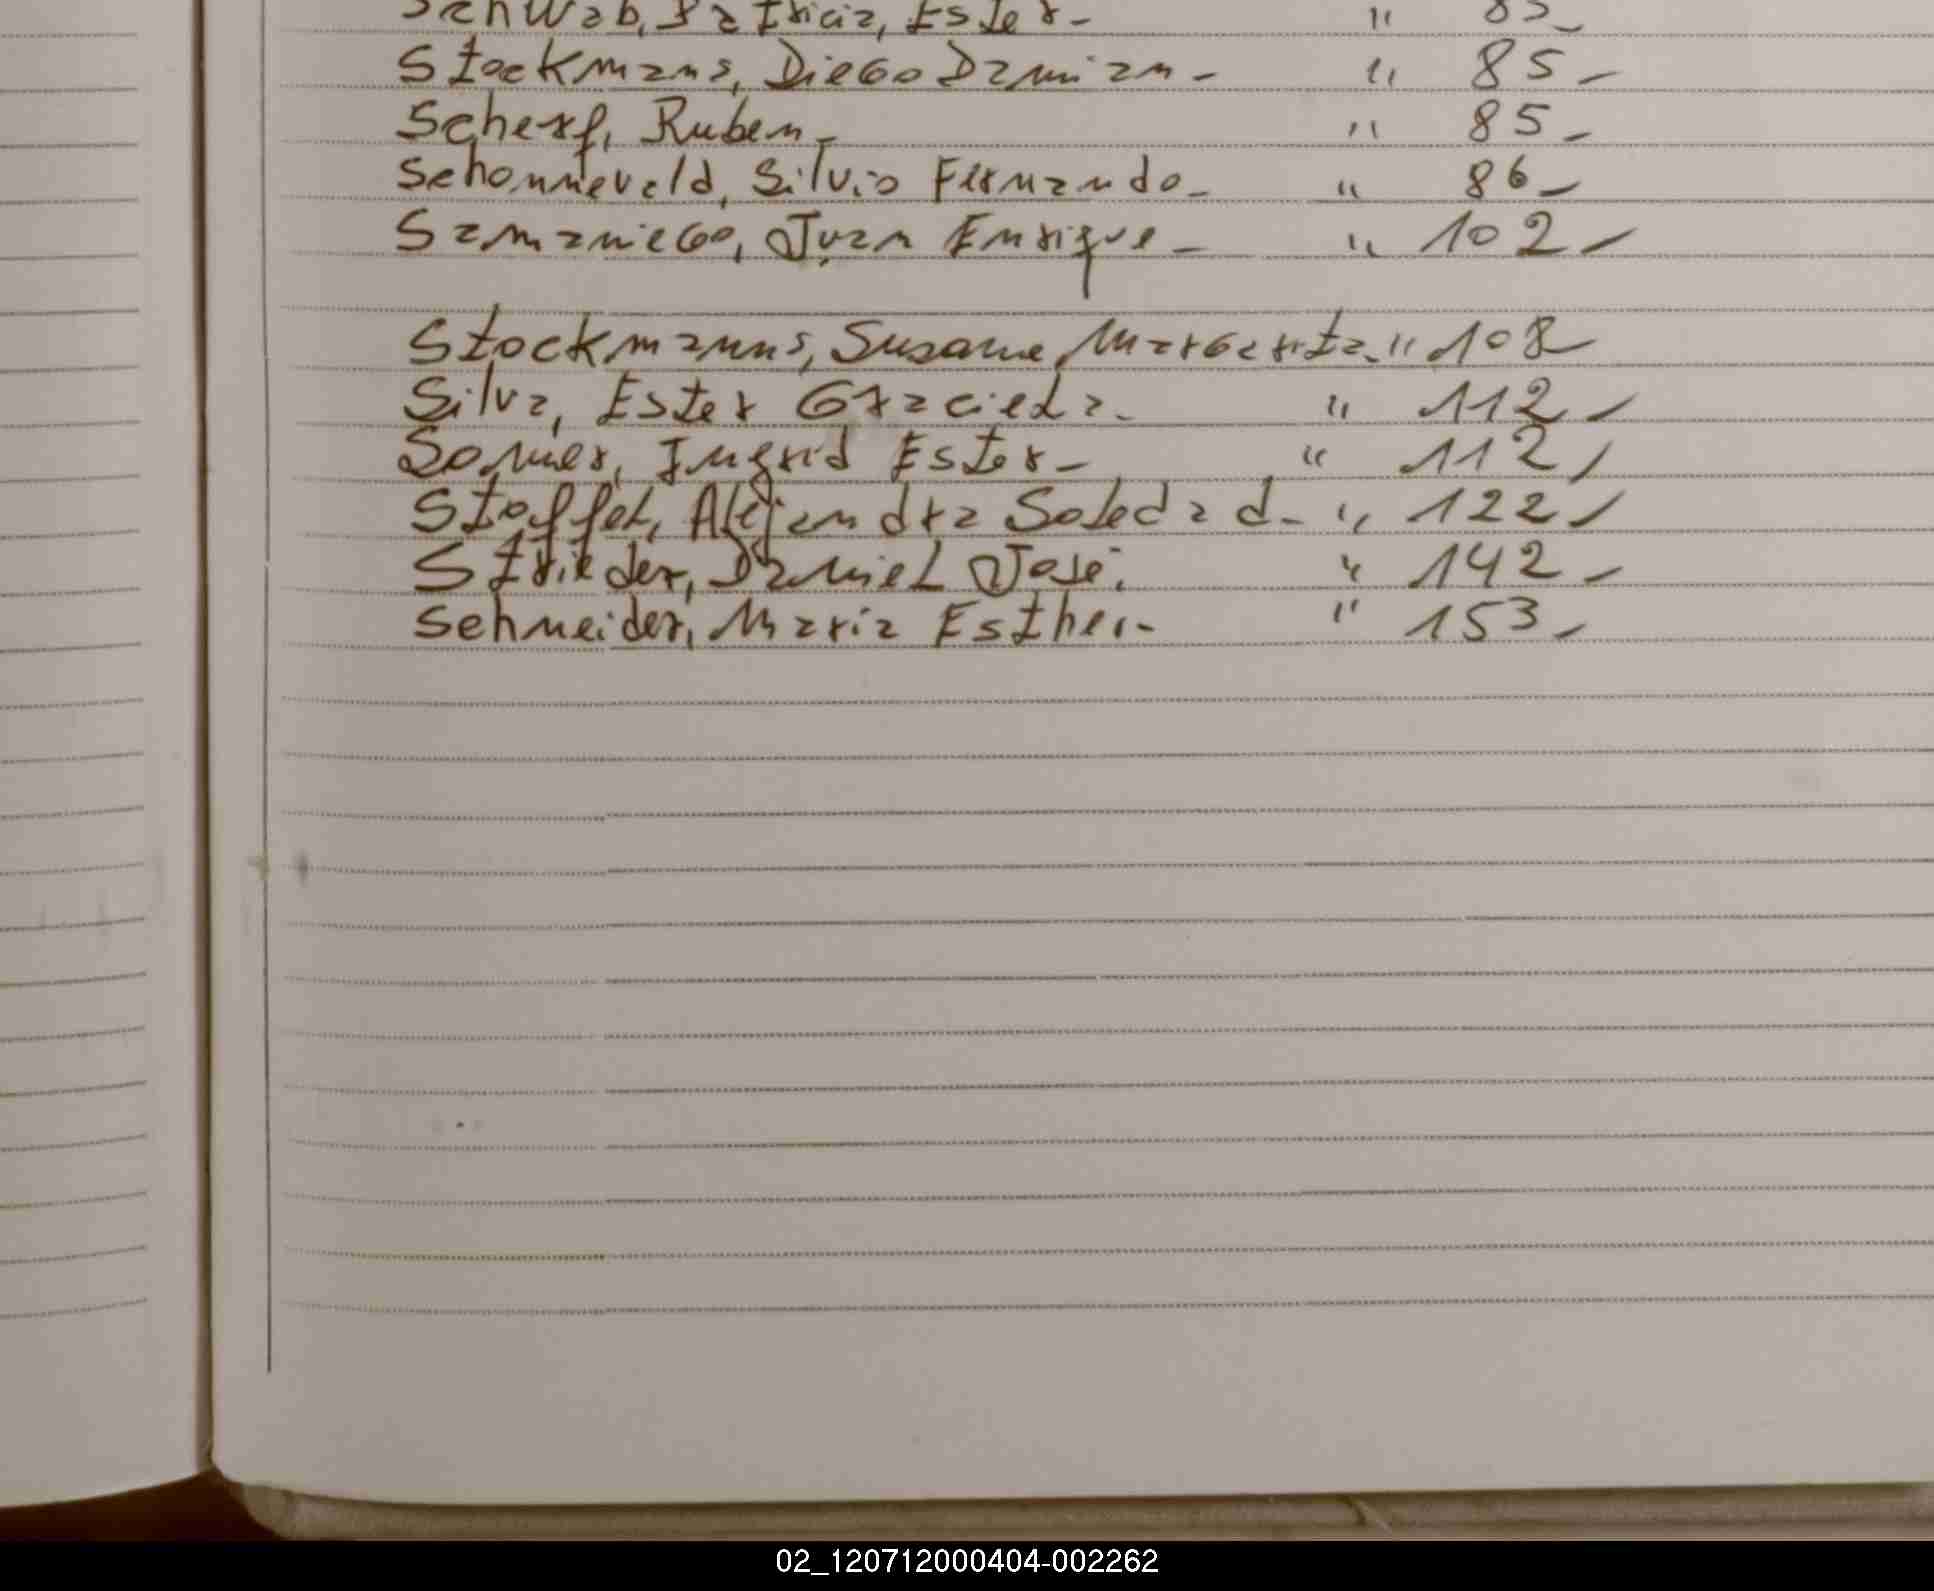 Schwab, Patricia, Ester- " 85-
Stockmans, Diego Damian- " 85-
Scherf, Ruben- " 85-
Schonneveld, Silvio Fernando- " 86-
Samaniego, Juan Enrique- " 102-
Stockmanns, Susane Margarita- " 108-
Silva, Ester Graciela- " 112-
Sonner, Ingrid Ester- " 112-
Stoffel, Alejandra Soledad- " 122-
Strieder, Daniel José. " 142-
Schneider, Maria Esther- " 153-
02_120712000404-002262